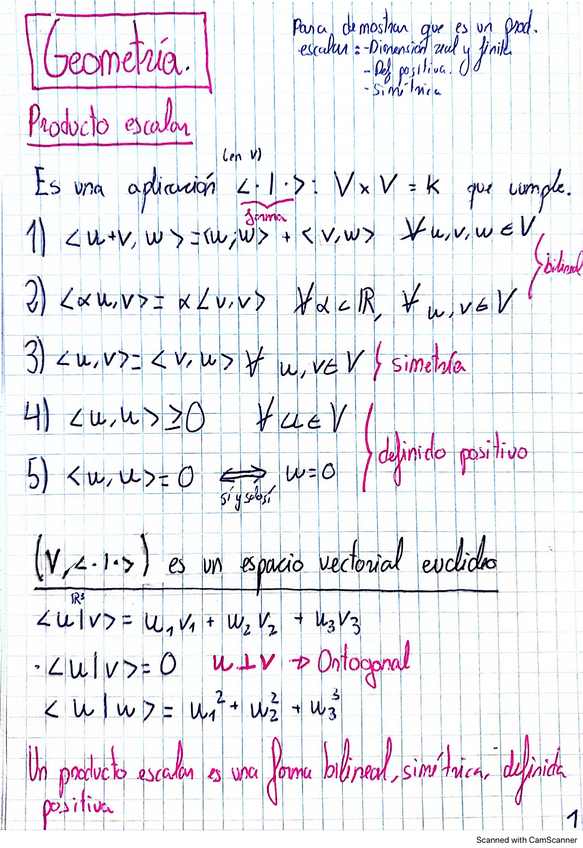 Geometría.
Para demostrar que es un prod.
escalar: -Dimensión real y finita
-Def positiva.
-Simétrica
Producto escalar
(en V)
Es una aplicación <·|·>: V x V = K que cumple.
forma
1) <u+v, w> = <u;w> + <v,w> ∀ u,v,w ∈ V
bilineal
2) <αu,v> = α<v,v> ∀ α ∈ ℝ, ∀ u,v ∈ V
3) <u,v> = <v,u> ∀ u,v ∈ V simetría
4) <u,u> ≥ 0 ∀ u ∈ V
definido positivo
5) <u,u> = 0 ⟺ u=0
sí y solo sí
(V,<·|·>) es un espacio vectorial euclideo
ℝ³
<u|v> = u₁v₁ + u₂v₂ + u₃v₃
· <u|v> = 0 u⊥v → Ortogonal
<u|u> = u₁² + u₂² + u₃³
Un producto escalar es una forma bilineal, simétrica, definida
positiva
1
Scanned with CamScanner